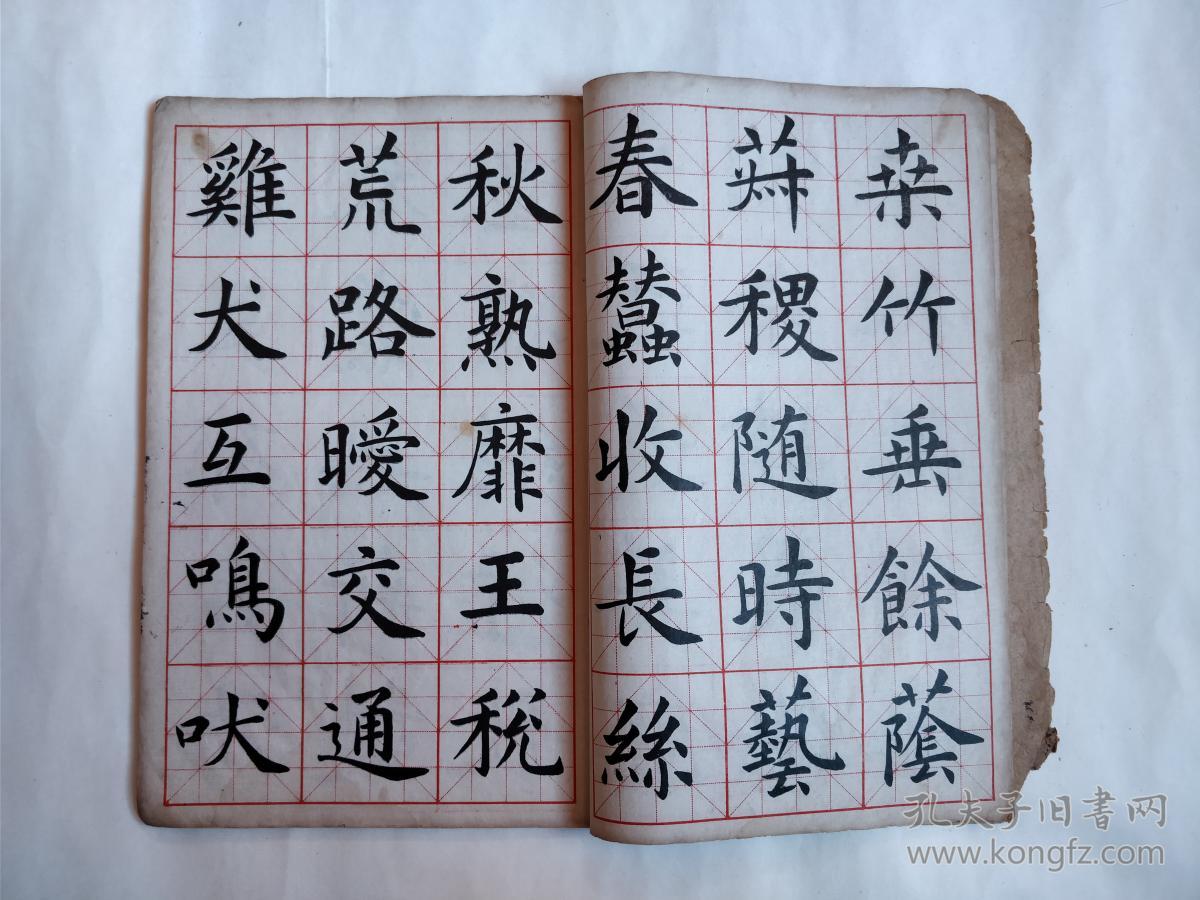 桒竹垂餘蔭
菽稷随時藝
春蠺收長絲
秋熟靡王稅
荒路曖交通
雞犬互鳴吠
孔夫子旧书网
www.kongfz.com